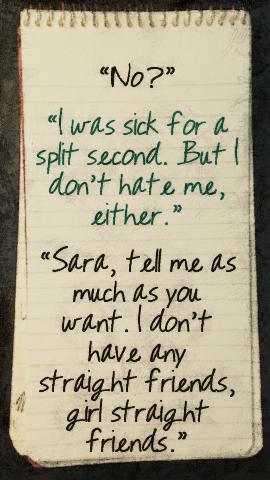 “No?”
“I was sick for a
split second. But I
don't hate me,
either.”
“Sara, tell me as
much as you
want. I don't
have any
straight friends,
girl straight
friends.”